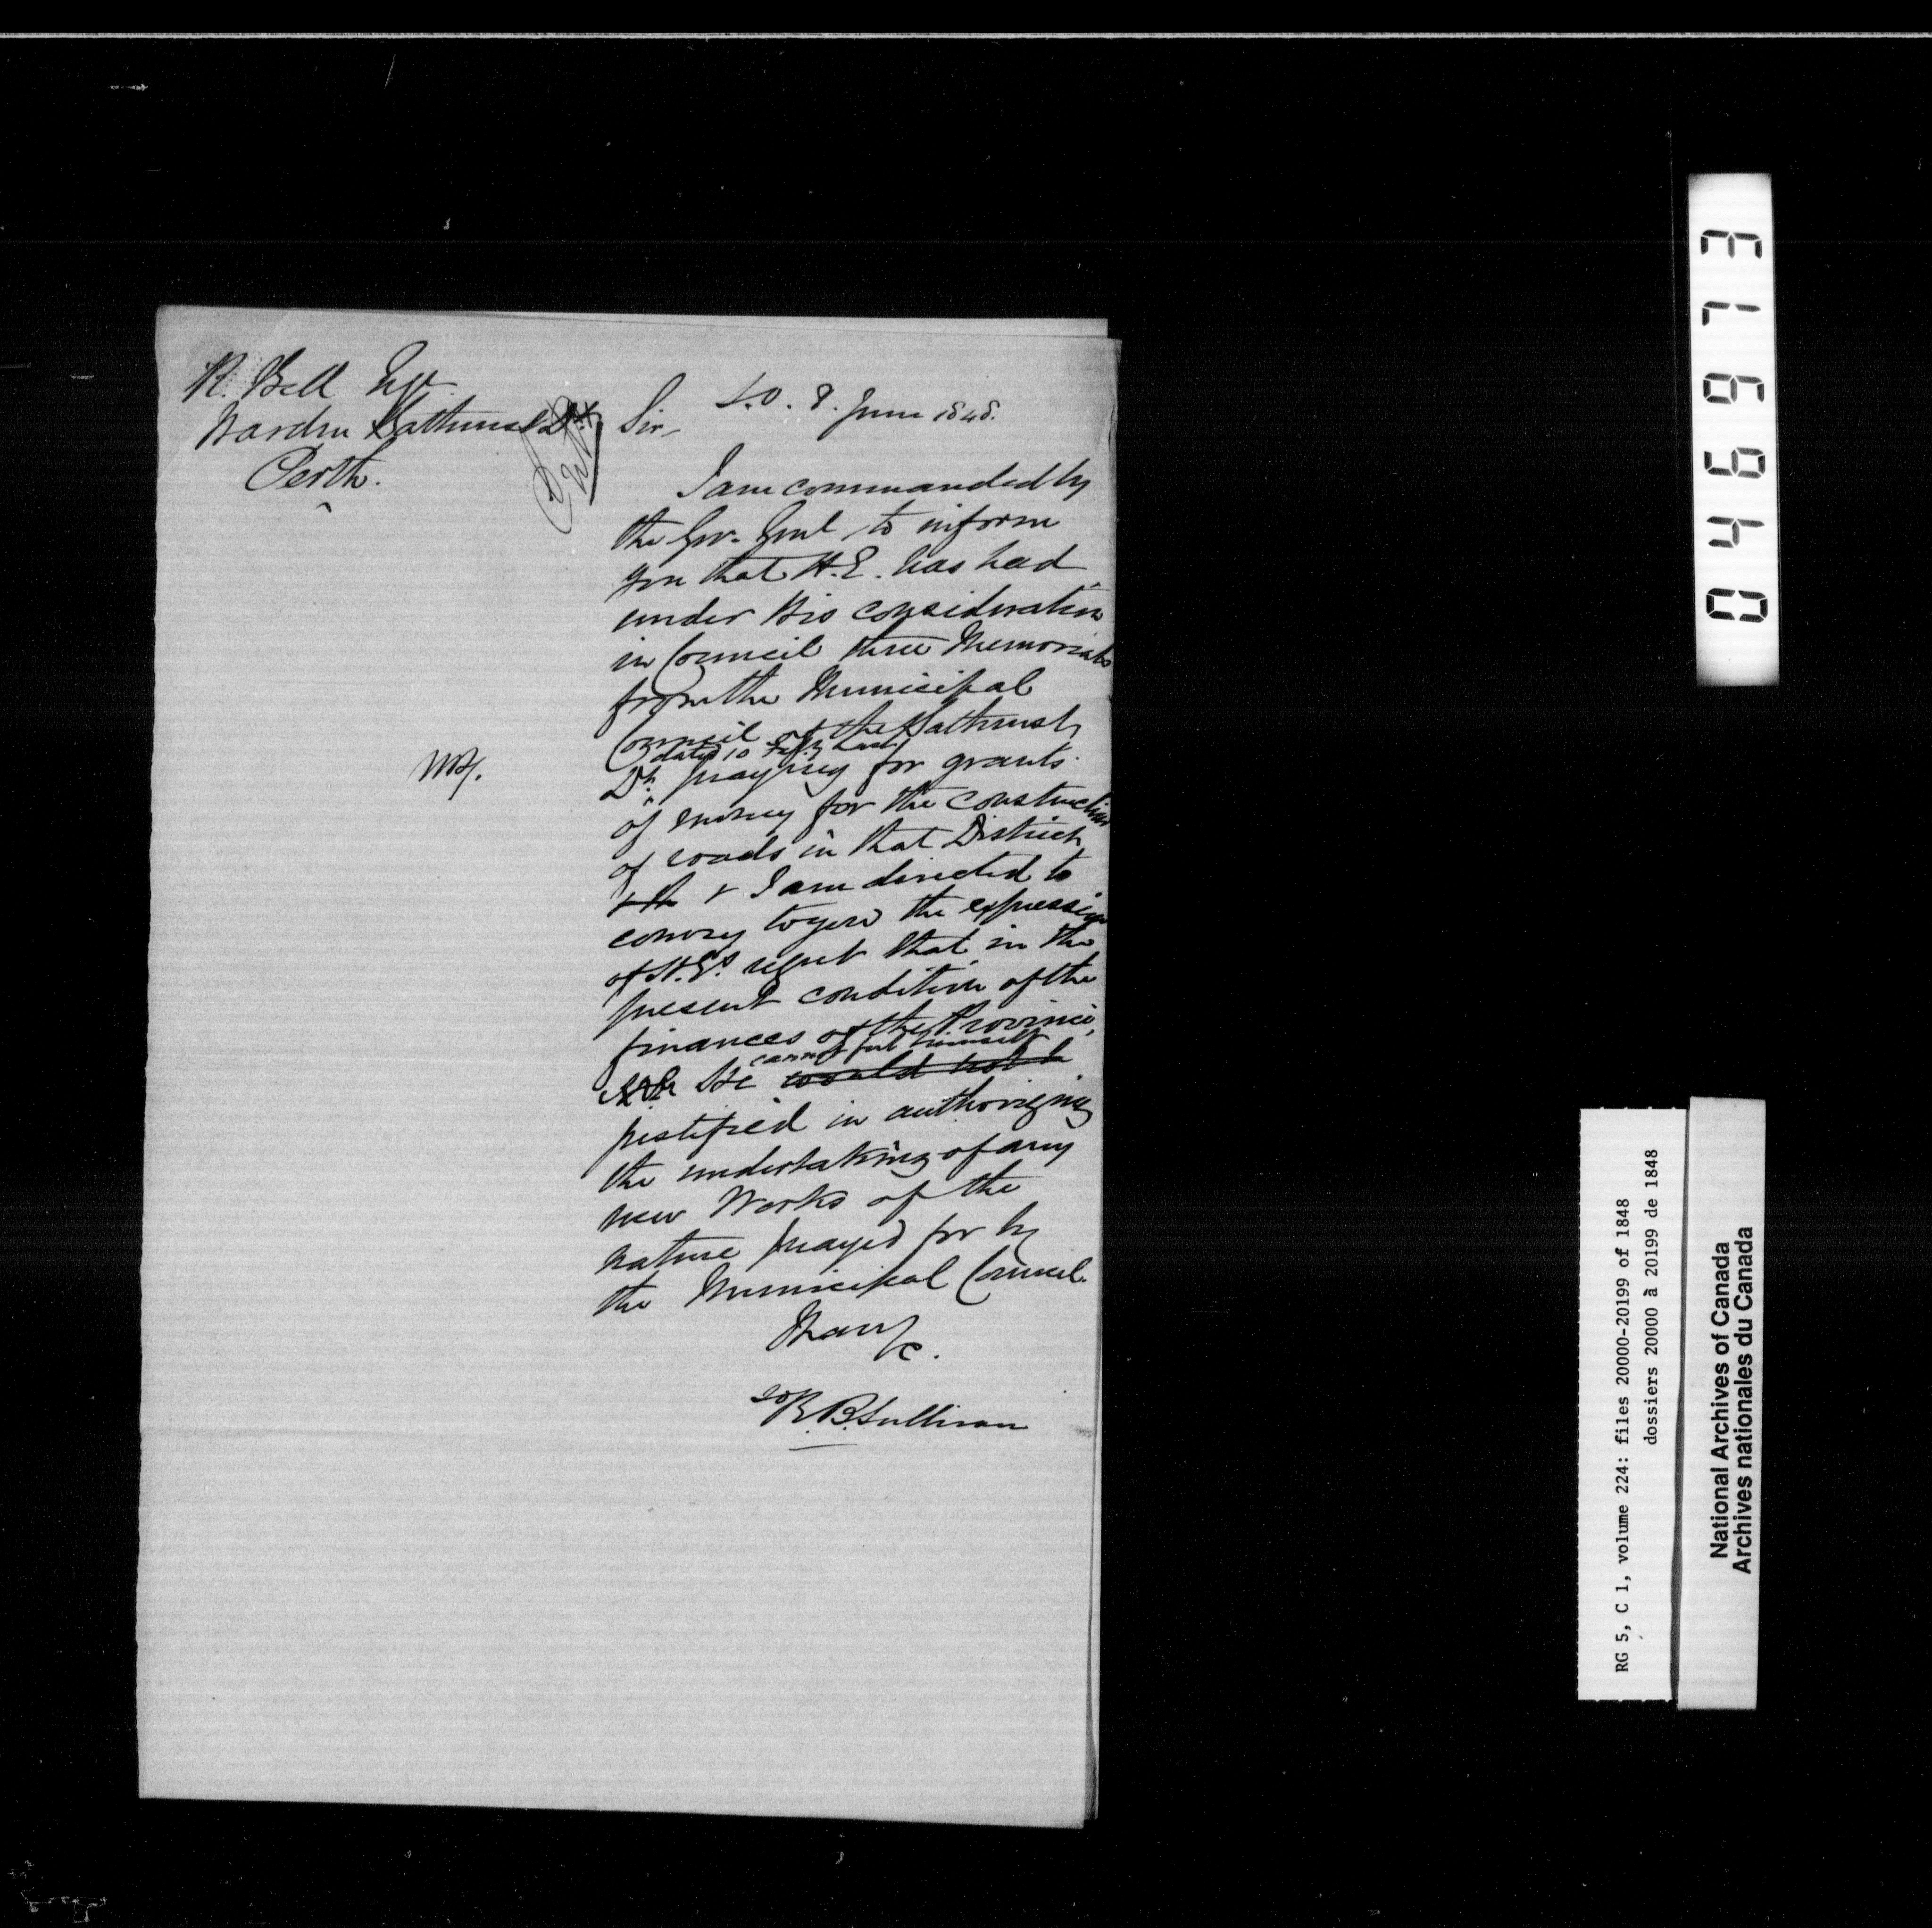 R. Bell Esqr
Warden Bathurst Dt
Perth.
S.O. 8. June 1848.
Sir,
I am commanded by
the Gov. Genl to inform
you that H.E. has had
under His consideration
in Council three Memorials
from the Municipal
Council of the Bathurst
dated 10 Feby last
Dt. praying for grants
of money for the construction
of roads in that District
& I am directed to
convey to you the expression
of H.E's regret that in the
present condition of the
finances of the Province,
cannot feel himself
He would not b
justified in authorizing
the undertaking of any
new Works of the
nature prayed for by
the Municipal Council.
I have &c.
R. B. Sullivan
0469713
RG 5, C 1, volume 224: files 20000-20199 of 1848
dossiers 20000 à 20199 de 1848
National Archives of Canada
Archives nationales du Canada